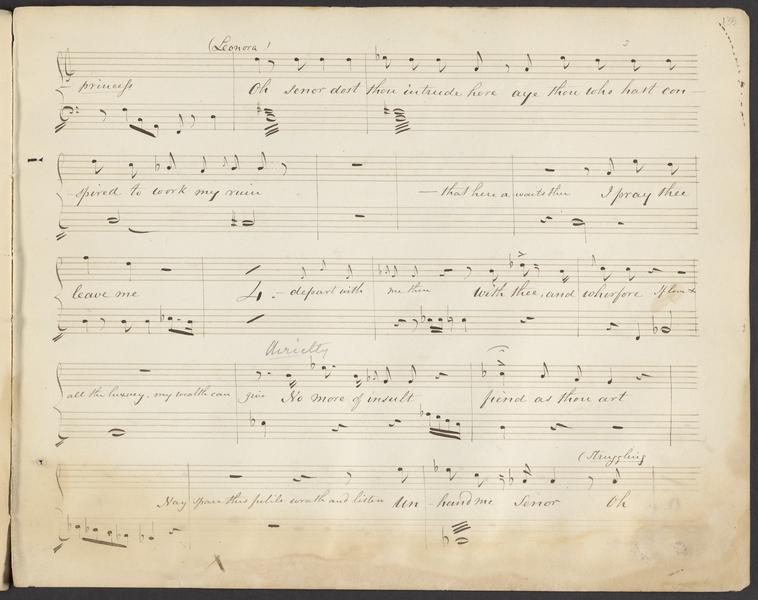 135
(Leonora!
princess Oh senor dost thou intrude here aye thou who hast con—
spired to work my ruin — that here awaits thee I pray thee
leave me 4. — depart with me thou with thee, and wherefore If love &
Airielty
all the luxury. my wealth can give No more of insult fiend as thou art
(Struggling
Nay spare this futile wrath and listen Un - hand me Senor Oh